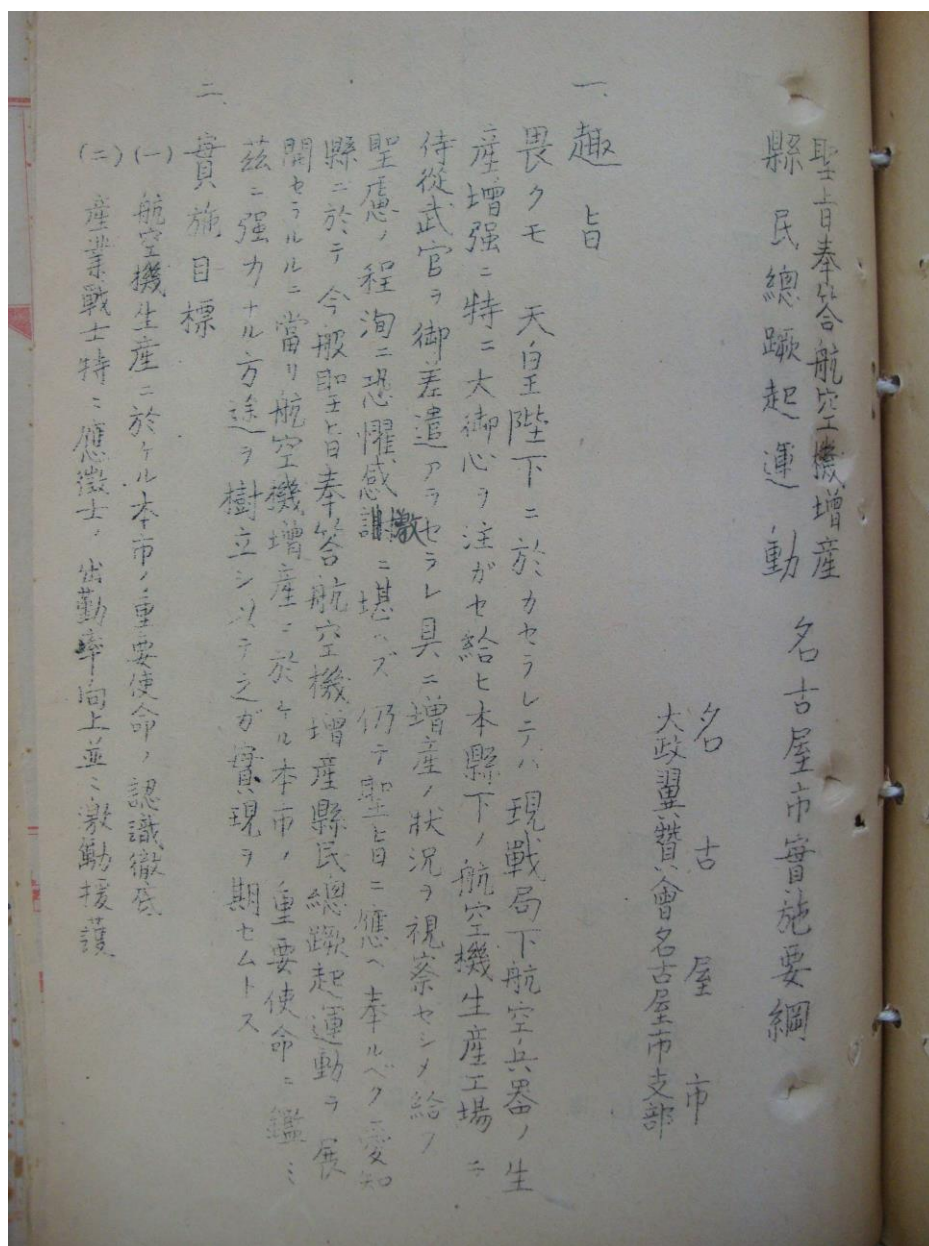 聖旨奉答航空機增産
縣民總蹶起運動 名古屋市實施要綱
名古屋市
大政翼贊會名古屋市支部
一、趣旨
畏クモ 天皇陛下ニ於カセラレテハ現戰局下航空兵器ノ生
産增强ニ特ニ大御心ヲ注ガセ給ヒ本縣下ノ航空機生産工場ニ
侍從武官ヲ御差遣アラセラレ具ニ增産ノ狀況ヲ視察セシメ給フ
聖慮ノ程洵ニ恐懼感激ニ堪ヘズ仍テ聖旨ニ應ヘ奉ルベク愛知
縣ニ於テ今般聖旨奉答航空機增産縣民總蹶起運動ヲ展
開セラルルニ當リ航空機增産ニ於ケル本市ノ重要使命ニ鑑ミ
茲ニ强力ナル方途ヲ樹立シ以テ之ガ實現ヲ期セムトス
二、實施目標
(一) 航空機生産ニ於ケル本市ノ重要使命ノ認識徹底
(二) 産業戰士特ニ應徵士ノ出勤率向上並ニ激勵援護